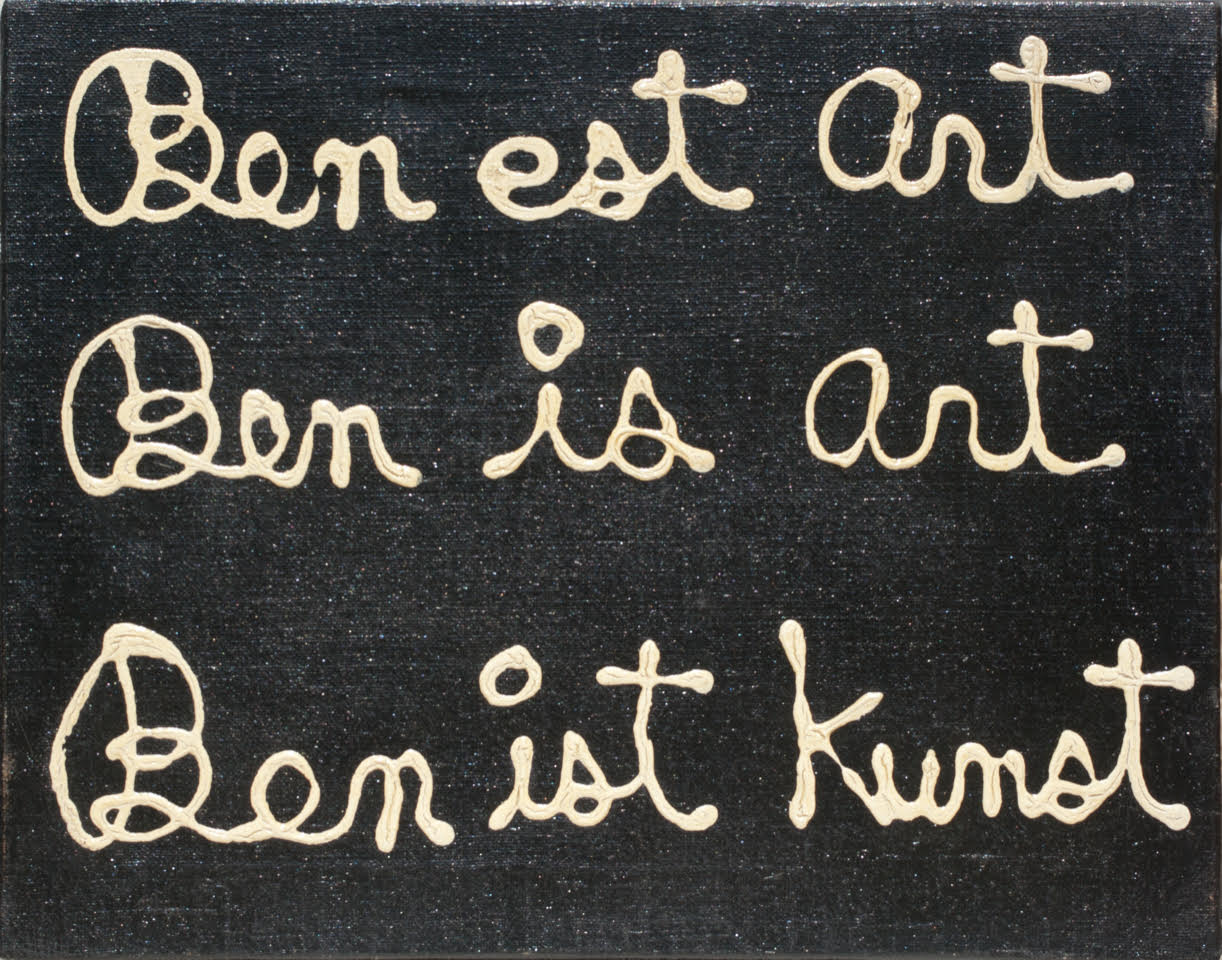 Ben est Art
Ben is art
Ben ist kunst